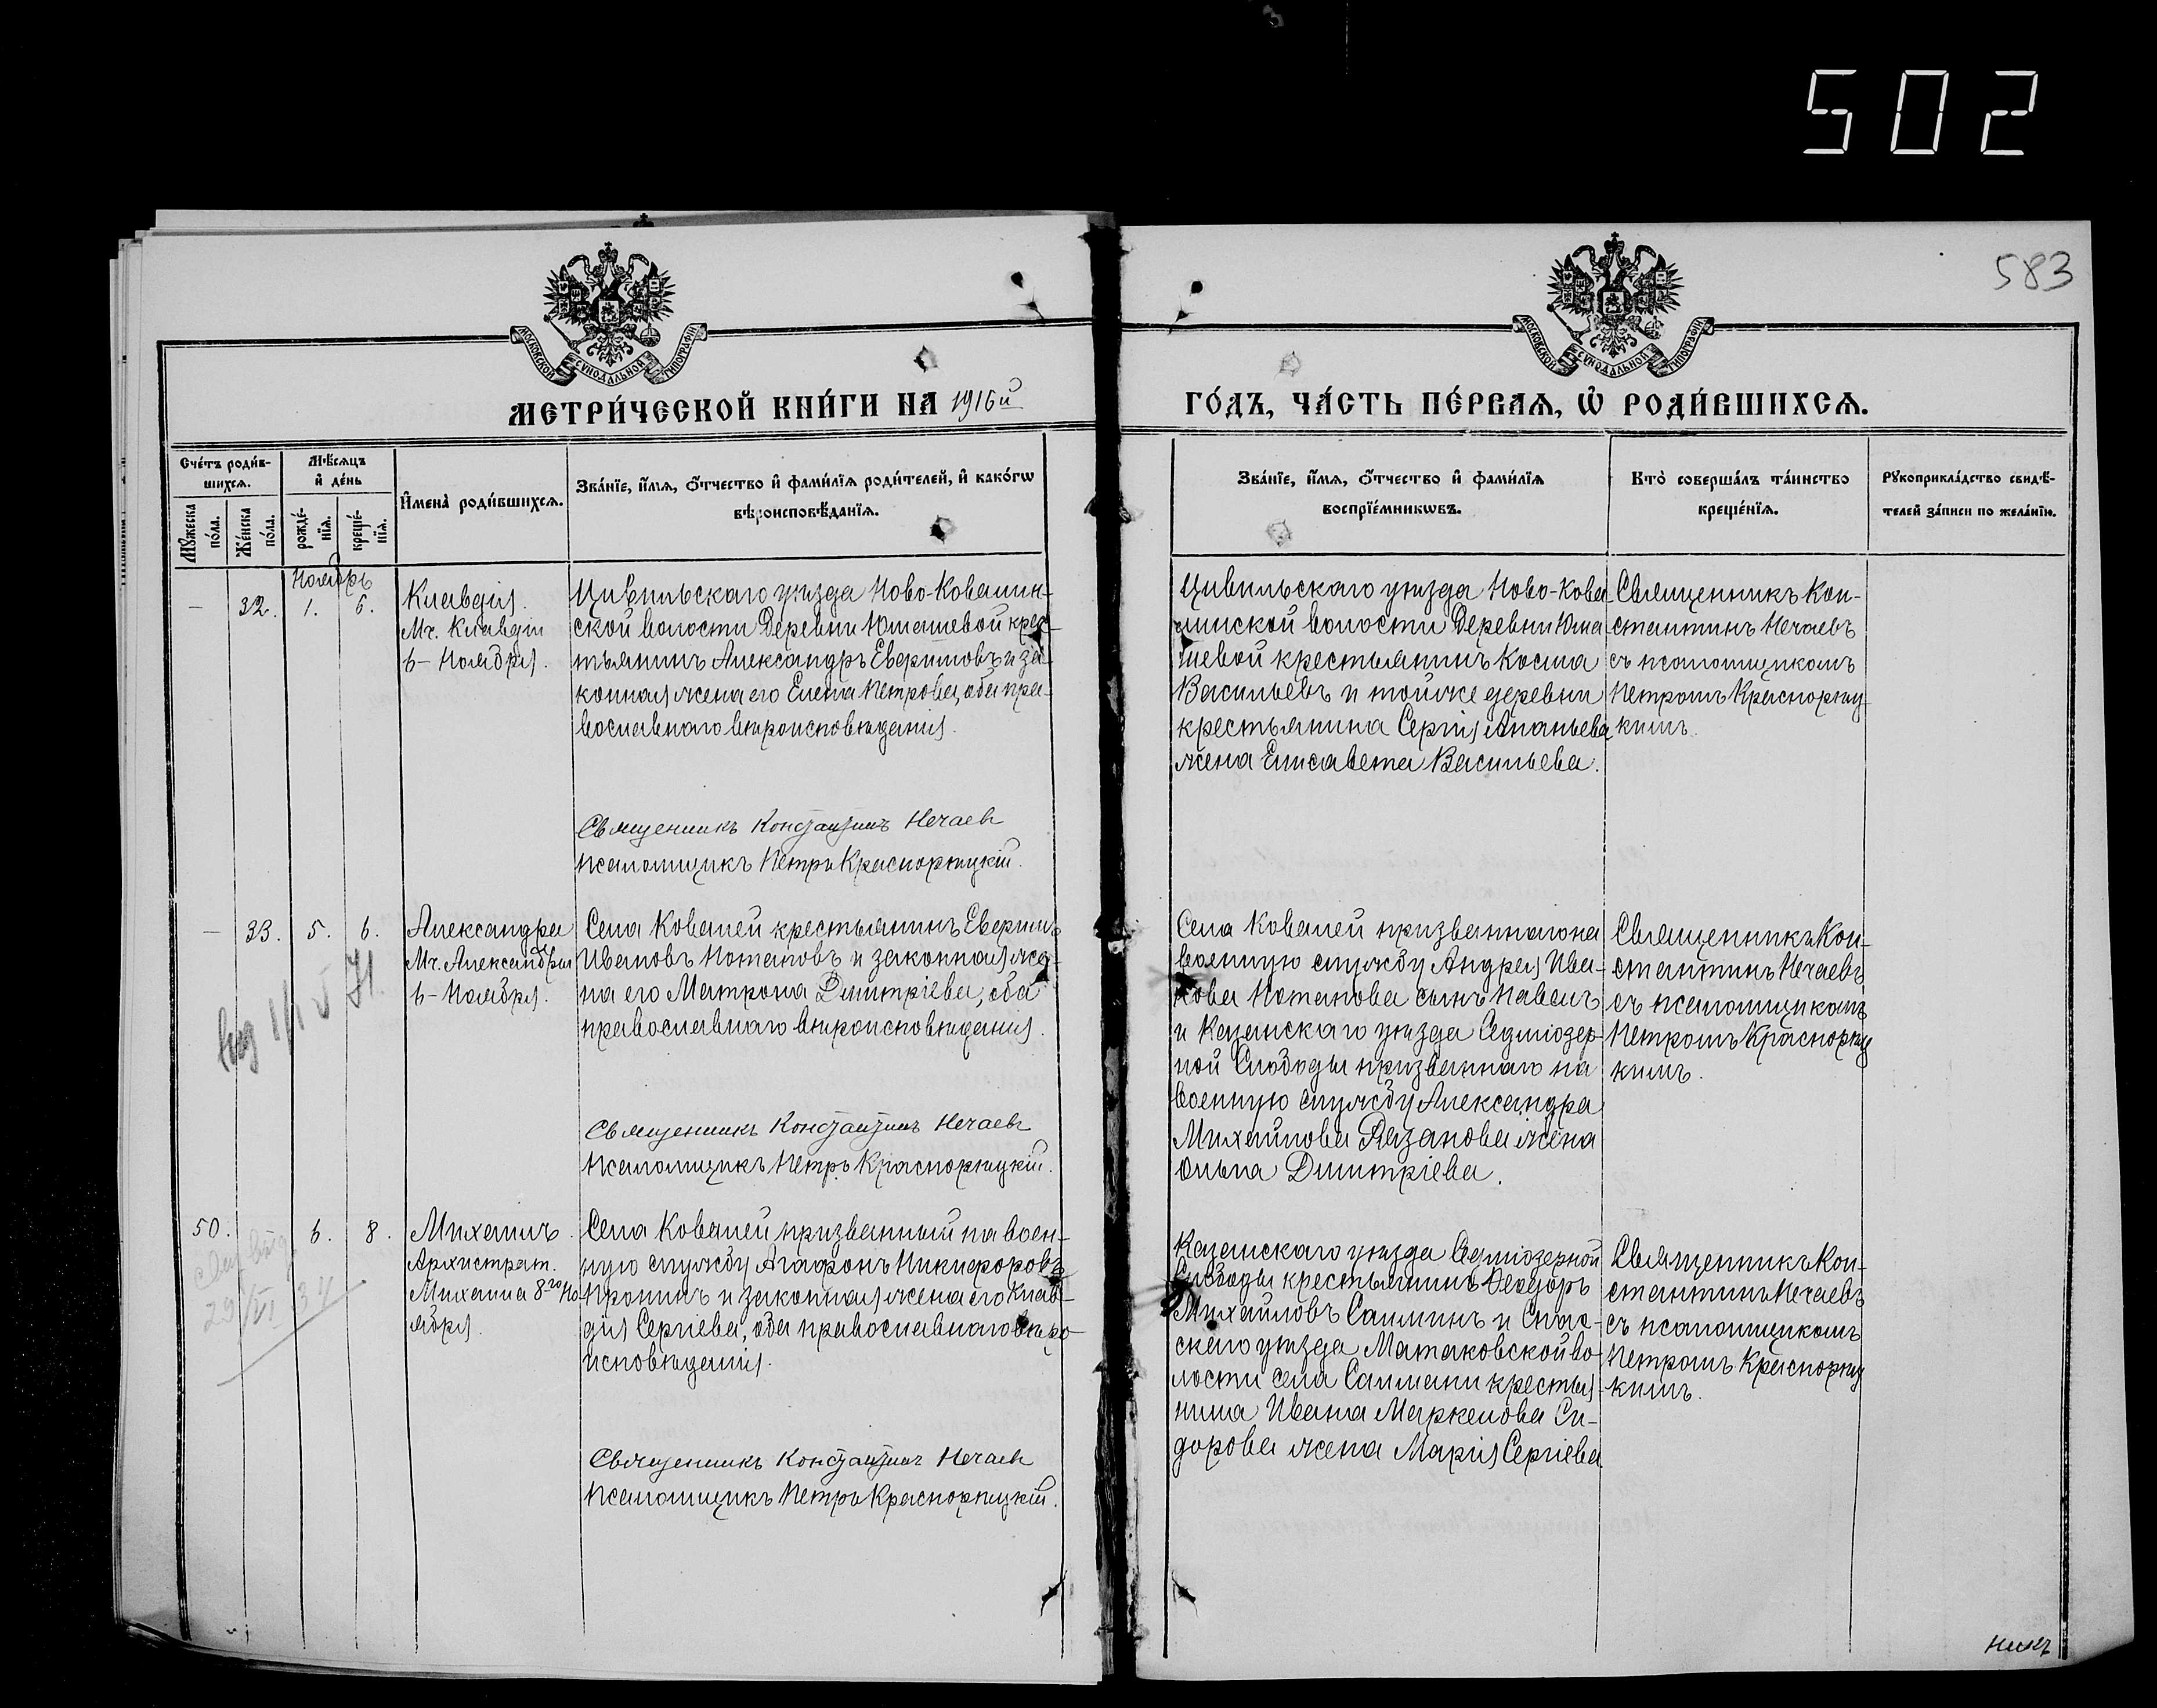 502
583
МОСКОВСКОЙ СѴНОДАЛЬНОЙ ТИПОГРАФІИ
МОСКОВСКОЙ СѴНОДАЛЬНОЙ ТИПОГРАФІИ
МЕТРИ́ЧЕСКОЙ КНИ́ГИ НА 1916й
ГО́ДЪ, ЧА́СТЬ ПЕ́РВАЯ, Ѡ҆ РОДИ́ВШИХСЯ.
Сче́тъ роди́в-
шихся.
Мѣ́сяцъ
и҆ де́нь
Му́жеска
по́ла.
Же́нска
по́ла.
рожде́-
нїя.
креще́-
нїя.
И҆мена̀ роди́вшихся.
Зва́нїе, и҆́мя, ѻ҆́тчество и҆ фами́лїя роди́телей, и҆ како́гѡ
вѣроисповѣ́данїя.
Зва́нїе, и҆́мя, ѻ҆́тчество и҆ фами́лїя
воспрїе́мникѡвъ.
Кто̀ соверша́лъ та́инство
креще́нїя.
Рꙋкоприкла́дство свидѣ́-
телей за́писи по жела́нїю.
Ноябрь
— 32. 1. 6.
Клавдія.
Мч. Клавдіи
6 – Ноября.
Цивильскаго уѣзда Ново-Ковалин-
ской волости Деревни Юташевой крес-
тьянинъ Александръ Евфимовъ и за-
конная жена его Елена Петрова, оба пра-
вославнаго вѣроисповѣданія.
Священникъ Константинъ Нечаевъ
Псаломщикъ Петръ Краснорѣцкій.
Цивильскаго уѣзда Ново-Кова-
линской волости Деревни Юта-
шевой крестьянинъ Косма
Васильевъ и той же деревни
крестьянина Сергія Ананьева
жена Елисавета Васильева.
Священникъ Кон-
стантинъ Нечаевъ
съ псаломщикомъ
Петромъ Краснорѣц-
кимъ.
— 33. 5. 6.
Александра
Мч. Александры
6 – Ноября.
Села Ковалей крестьянинъ Евфимъ
Ивановъ Потаповъ и законная же-
на его Матрона Димитріева, оба
православнаго вѣроисповѣданія.
Священникъ Константинъ Нечаевъ
Псаломщикъ Петръ Краснорѣцкій.
Села Ковалей призваннаго на
военную службу Андрея Ива-
нова Потапова сынъ Павелъ
и Казанскаго уѣзда Седміозер-
ной Слободы призваннаго на
военную службу Александра
Михайлова Рязанова жена
Ольга Димитріева.
Священникъ Кон-
стантинъ Нечаевъ
съ псаломщикомъ
Петромъ Краснорѣц-
кимъ.
50. 6. 8.
29/VI 34
Михаилъ.
Архистрат.
Михаила 8го Но-
ября.
Села Ковалей призванный на воен-
ную службу Агафонъ Никифоровъ
Пронинъ и законная жена его Клав-
дія Сергіева, оба православнаго вѣро-
исповѣданія.
Священникъ Константинъ Нечаевъ
Псаломщикъ Петръ Краснорѣцкій.
Казанскаго уѣзда Седміозерной
Слободы крестьянинъ Ѳеодоръ
Михайловъ Салминъ и Спас-
скаго уѣзда Матаковской во-
лости села Салмани крестья-
нина Ивана Маркелова Си-
дорова жена Марія Сергіева
Священникъ Кон-
стантинъ Нечаевъ
съ псаломщикомъ
Петромъ Краснорѣц-
кимъ.